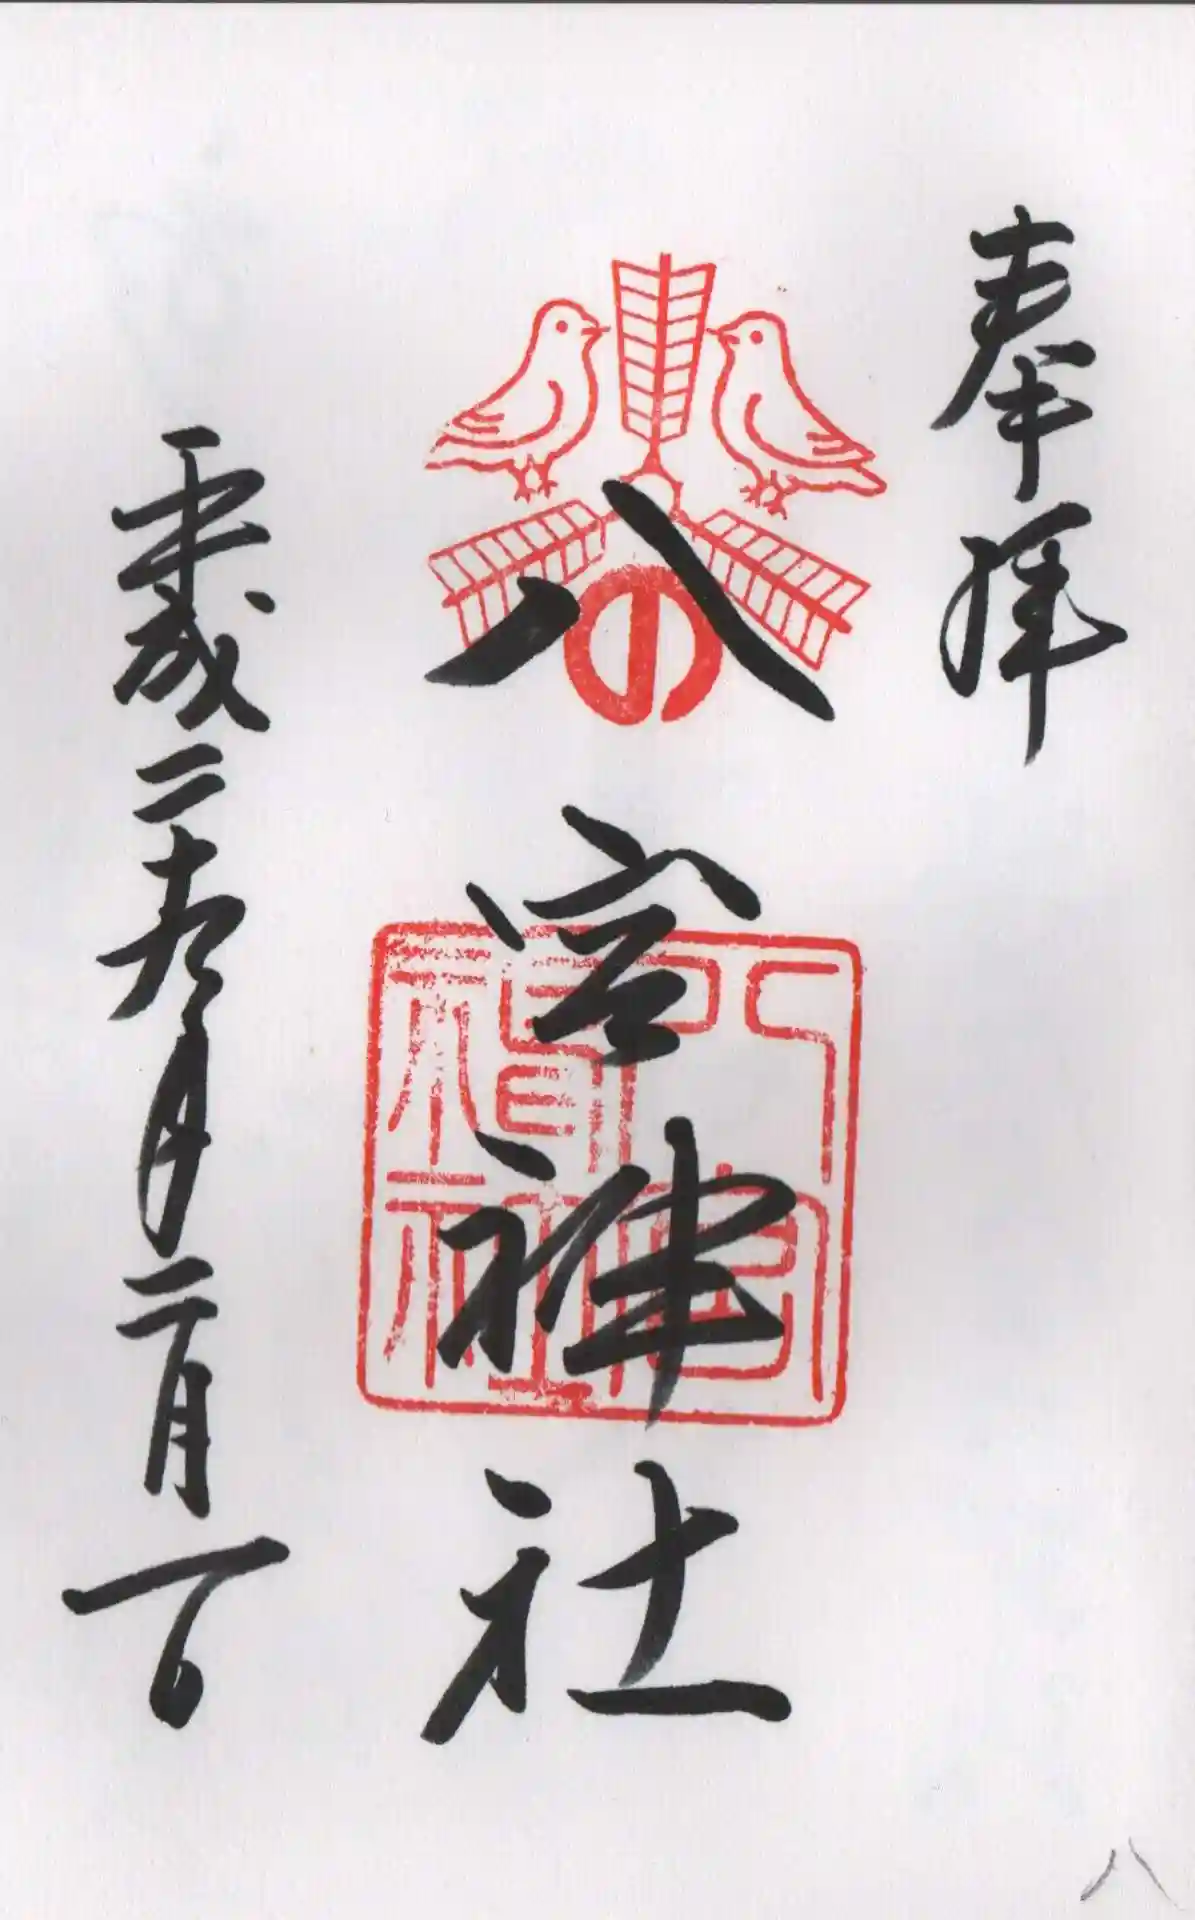 奉拝
八宮神社
八宮神社
平成二十九年二月一日
八